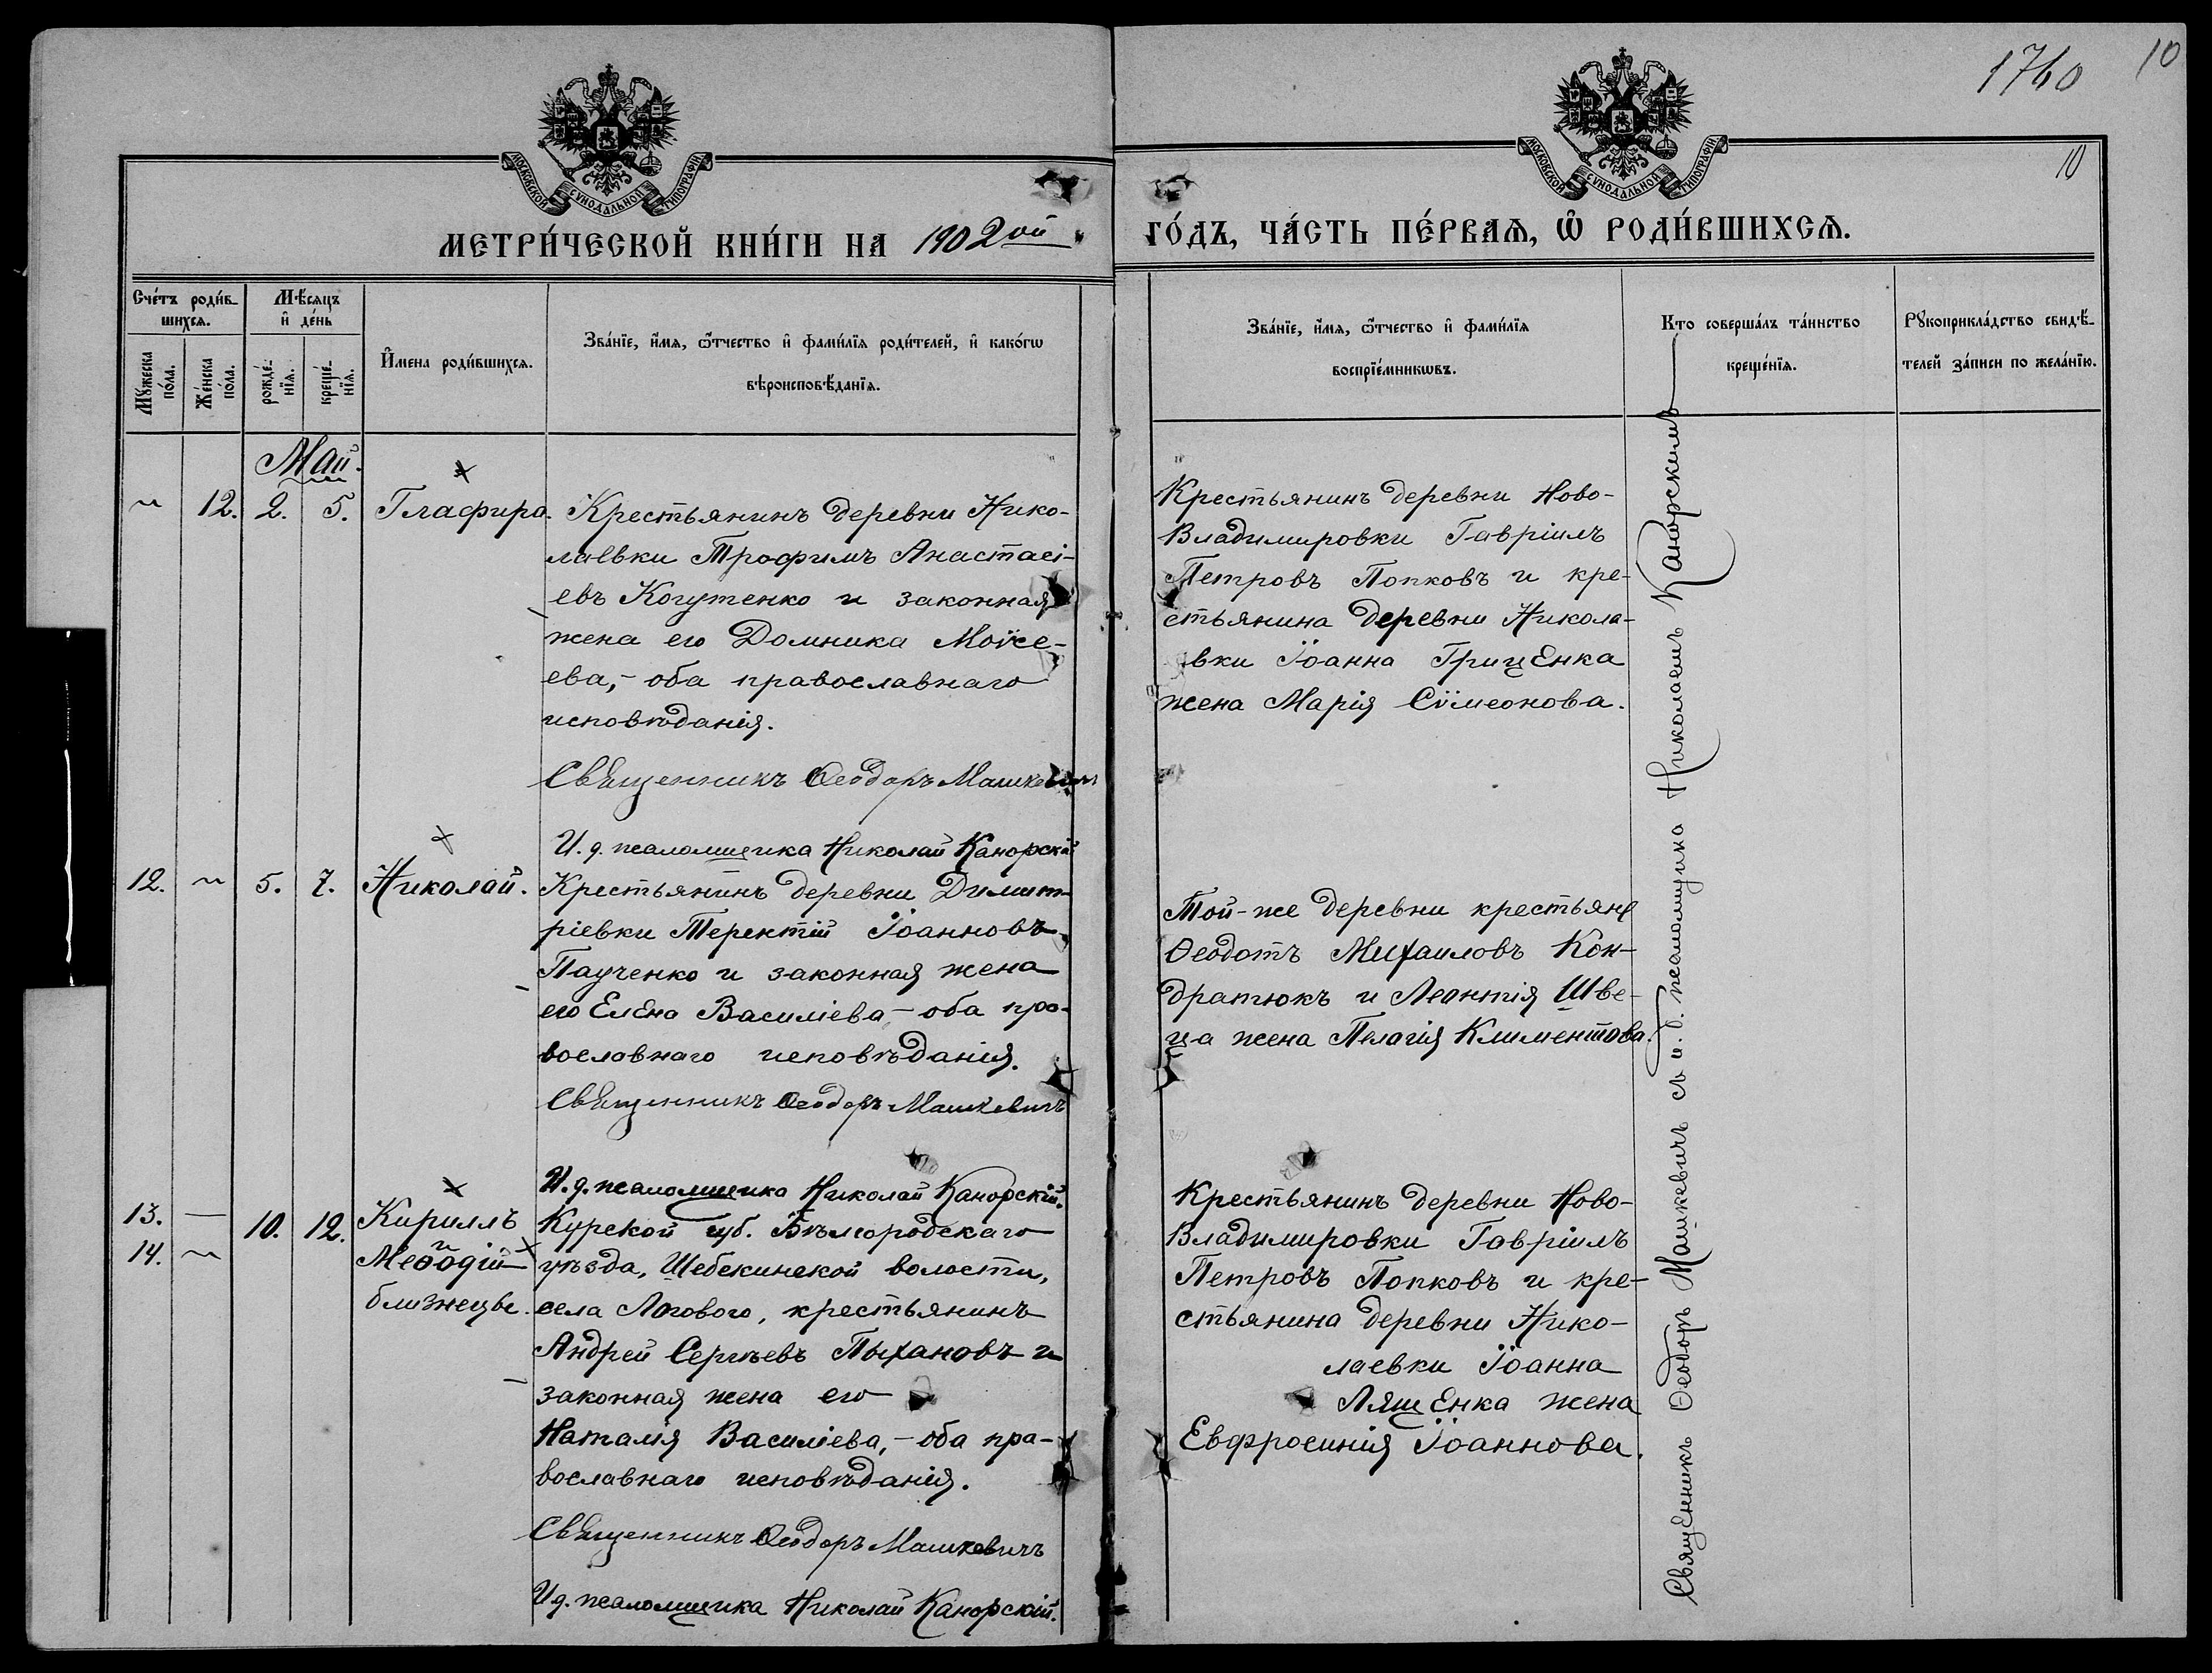 1760
10
10
МОСКОВСКОЙ СѴНОДАЛЬНОЙ ТИПОГРАФІИ
МОСКОВСКОЙ СѴНОДАЛЬНОЙ ТИПОГРАФІИ
МЕТРИ́ЧЕСКОЙ КНИ́ГИ НА 1902ой
ГО́ДЪ, ЧА́СТЬ ПЕ́РВАѦ, Ѡ҆ РОДИ́ВШИХСѦ.
Сче́тъ роди́в-
шихсѧ.
Мꙋ́жеска по́ла.
Же́нска по́ла.
Мѣ́сѧцъ
и҆ де́нь
рожде́-
нїѧ.
креще́-
нїѧ.
И҆мена роди́вшихсѧ.
Зва́нїе, и҆́мѧ, ѻ҆́тчество и҆ фами́лїѧ роди́телей, и҆ како́гѡ
вѣроисповѣ́данїѧ.
Зва́нїе, и҆́мѧ, ѻ҆́тчество и҆ фами́лїѧ
воспрїе́мникѡвъ.
Кто соверша́лъ та́инство
креще́нїѧ.
Рꙋкоприкла́дство свидѣ́-
телей за́писи по жела́нїю.
Май.
12. 2. 5. Глафира.
Крестьянинъ деревни Нико-
лаевки Трофимъ Анастасі-
евъ Когутенко и законная
жена его Домника Моѵсе-
ева, - оба православнаго
исповѣданія.
Священникъ Ѳеодоръ Машкевичъ
И. д. псаломщика Николай Канорскій
Крестьянинъ деревни Ново-
Владимировки Гавріилъ
Петровъ Попковъ и кре-
стьянина деревни Никола-
евки Іоанна Гриценка
жена Марія Сѵмеонова.
12. 5. 7. Николай.
Крестьянинъ деревни Димит-
ріевки Терентій Іоанновъ
Паученко и законная жена
его Елена Василіева - оба пра-
вославнаго исповѣданія.
Священникъ Ѳеодоръ Машкевичъ
И. д. псаломщика Николай Канорскій.
Той-же деревни крестьяне
Ѳеодотъ Михаиловъ Кон-
дратюкъ и Леонтія Шве-
ца жена Пелагія Климентова.
13.
14.
10. 12.
Кириллъ
и
Меѳодій
близнецы.
Курской губ. Бѣлгородскаго
уѣзда, Шебекинской волости,
села Логового, крестьянинъ
Андрей Сергѣевъ Пыхановъ и
законная жена его
Наталія Василіева, - оба пра-
вославнаго исповѣданія.
Священникъ Ѳеодоръ Машкевичъ
И д. псаломщика Николай Канорскій.
Крестьянинъ деревни Ново-
Владимировки Гавріилъ
Петровъ Попковъ и кре-
стьянина деревни Нико-
лаевки Іоанна
Лященка жена
Евфросинія Іоаннова.
Священникъ Ѳеодоръ Машкевичъ съ и. д. псаломщика Николаемъ Канорскимъ